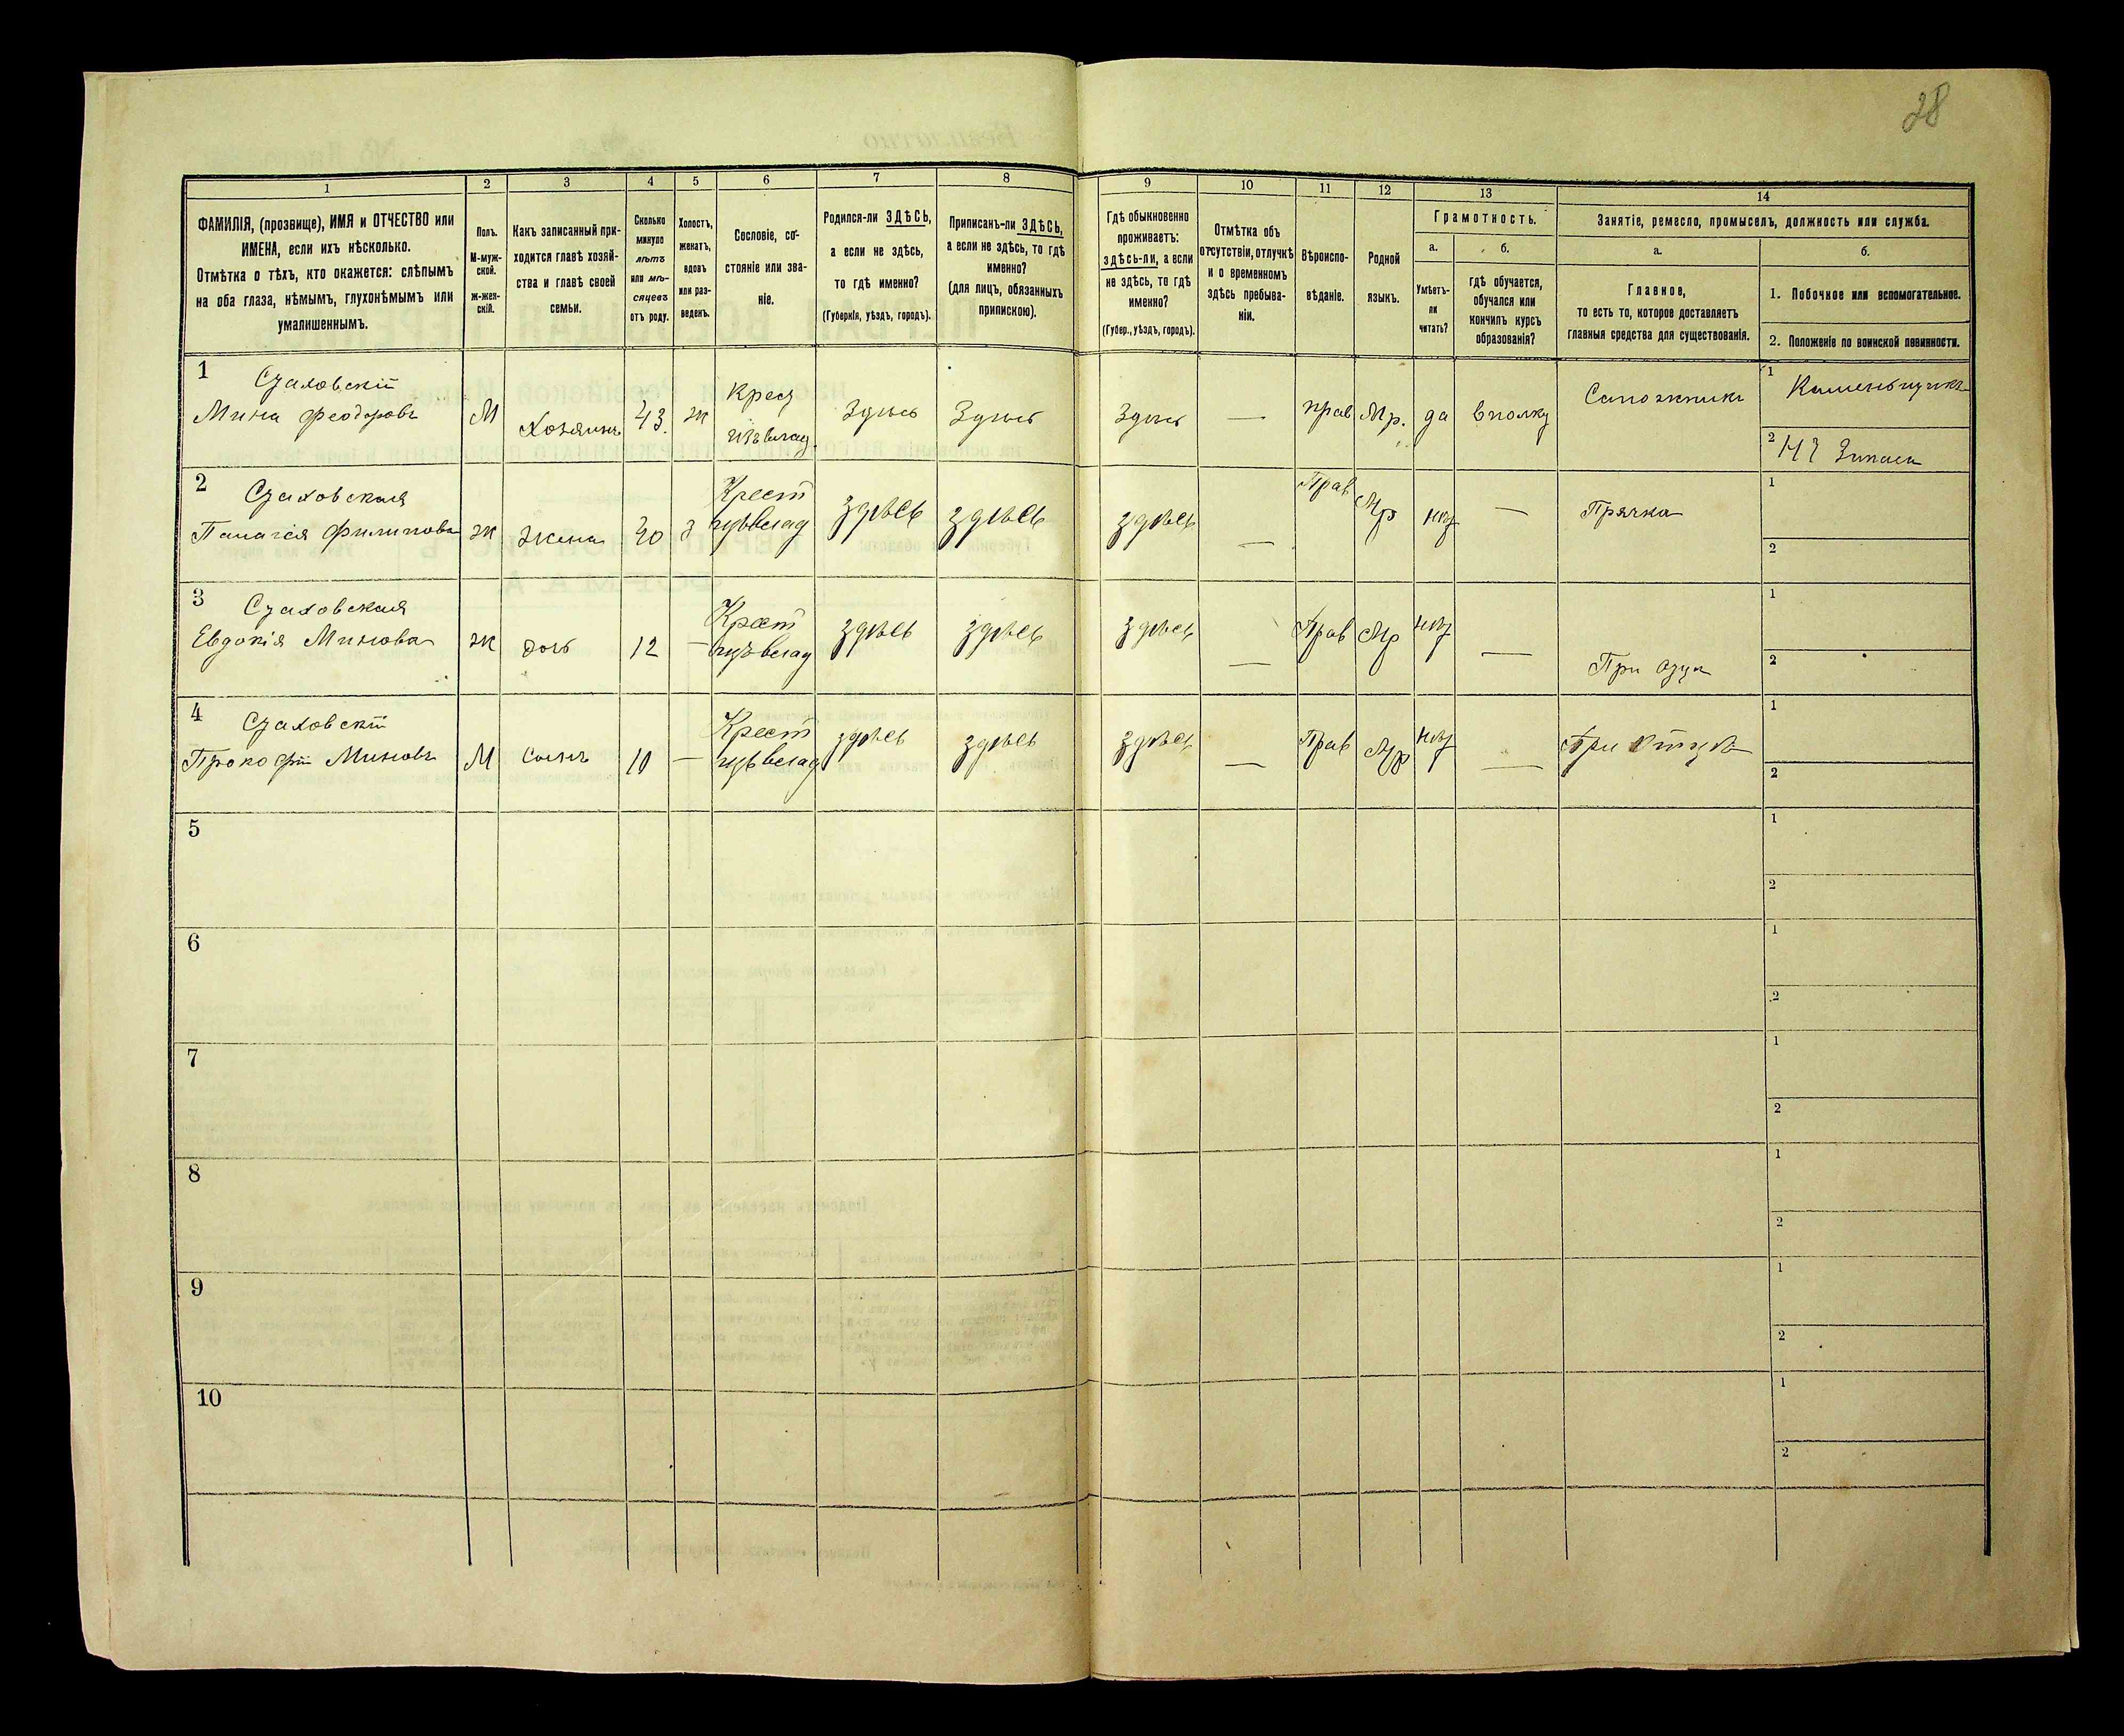 28
1
2
3
4
5
6
7
8
9
10
11
12
13
14
ФАМИЛІЯ, (прозвище), ИМЯ и ОТЧЕСТВО или
ИМЕНА, если ихъ нѣсколько.
Отмѣтка о тѣхъ, кто окажется: слѣпымъ
на оба глаза, нѣмымъ, глухонѣмымъ или
умалишеннымъ.
Полъ.
М-муж-
ской.
Ж-жен-
скій.
Какъ записанный при-
ходится главѣ хозяй-
ства и главѣ своей
семьи.
Сколько
минуло
лѣтъ
или мѣ-
сяцевъ
отъ роду.
Холостъ,
женатъ,
вдовъ
или раз-
веденъ.
Сословіе, со-
стояніе или зва-
ніе.
Родился-ли ЗДѢСЬ,
а если не здѣсь,
то гдѣ именно?
(Губернія, уѣздъ, городъ).
Приписанъ-ли ЗДѢСЬ,
а если не здѣсь, то гдѣ
именно?
(для лицъ, обязанныхъ
припискою).
Гдѣ обыкновенно
проживаетъ:
здѣсь-ли, а если
не здѣсь, то гдѣ
именно?
(Губер., уѣздъ, городъ).
Отмѣтка объ
отсутствіи, отлучкѣ
и о временномъ
здѣсь пребыва-
ніи.
Вѣроиспо-
вѣданіе.
Родной
языкъ.
Грамотность.
а.
б.
Умѣетъ-
ли
читать?
гдѣ обучается,
обучался или
кончилъ курсъ
образованія?
Занятіе, ремесло, промыселъ, должность или служба.
а.
б.
Главное,
то есть то, которое доставляетъ
главныя средства для существованія.
1. Побочное или вспомогательное.
2. Положеніе по воинской повинности.
1
Стаховскій
Мина Феодоровъ
М
Хозяинъ
43.
ж
Крест
изъ влад.
Здѣсь
Здѣсь
Здѣсь
—
прав
Мр.
да
в полку
Сапожникъ
1
Каменьщикъ
2
НЧ Запаса
2
Стаховская
Палагея Филипова
ж
жена
40
з
Крест
изъ влад
здѣсь
здѣсь
здѣсь
—
Прав
Мр
нѣт
—
Прячка
1
2
3
Стаховская
Евдокія Минова
ж
дочь
12
—
Крест
изъ влад
здѣсь
здѣсь
здѣсь
—
Прав
Мр
нѣт
—
При отце
1
2
4
Стаховскій
Прокофій Миновъ
М
сынъ
10
—
Крест
изъ влад
здѣсь
здѣсь
здѣсь
—
Прав
Мр
нѣт
—
При отцѣ
1
2
5
1
2
6
1
2
7
1
2
8
1
2
9
1
2
10
1
2